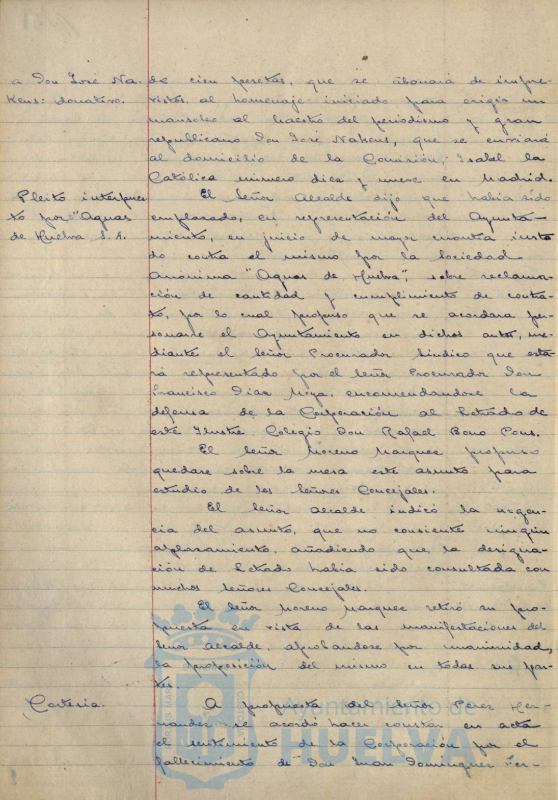 a Don José Na-
kens: donativo.
de cien pesetas, que se abonará de impre-
vistos, al homenaje iniciado para erigir un
mausoleo al maestro del periodismo y gran
republicano Don José Nakens, que se enviará
al domicilio de la Comisión, Isabel la
Católica número diez y nueve en Madrid.
Pleito interpues-
to por "Aguas
de Huelva S.A.
El Señor Alcalde dijo que había sido
emplazado, en representación del Ayunta-
miento, en juicio de mayor cuantía insta-
do contra el mismo por la Sociedad
Anónima "Aguas de Huelva", sobre reclama-
ción de cantidad y cumplimiento de contra-
to, por lo cual propuso que se acordara per-
sonarse el Ayuntamiento en dichos autos, me-
diante el Señor Procurador Síndico que esta-
rá representado por el Señor Procurador Don
Francisco Díaz encomendándose la
defensa de la Corporación al Letrado de
este Ilustre Colegio Don Rafael Bono Pons.
El Señor Moreno Marquez propuso
quedase sobre la mesa este asunto para
estudio de los Señores Concejales.
El Señor Alcalde indicó la urgen-
cia del asunto, que no consiente ningún
aplazamiento, añadiendo que la designa-
ción de Letrado había sido consultada con
muchos Señores Concejales.
El Señor Moreno Marquez retiró su pro-
puesta en vista de las manifestaciones del
Señor Alcalde, aprobándose por unanimidad,
la proposición del mismo en todas sus par-
tes.
Cortesia.
A propuesta del Señor Perez Her-
nandez se acordó hacer constar en acta
el sentimiento de la Corporación por el
fallecimiento de Don Juan Domínguez Fer-
Ayuntamiento de
HUELVA